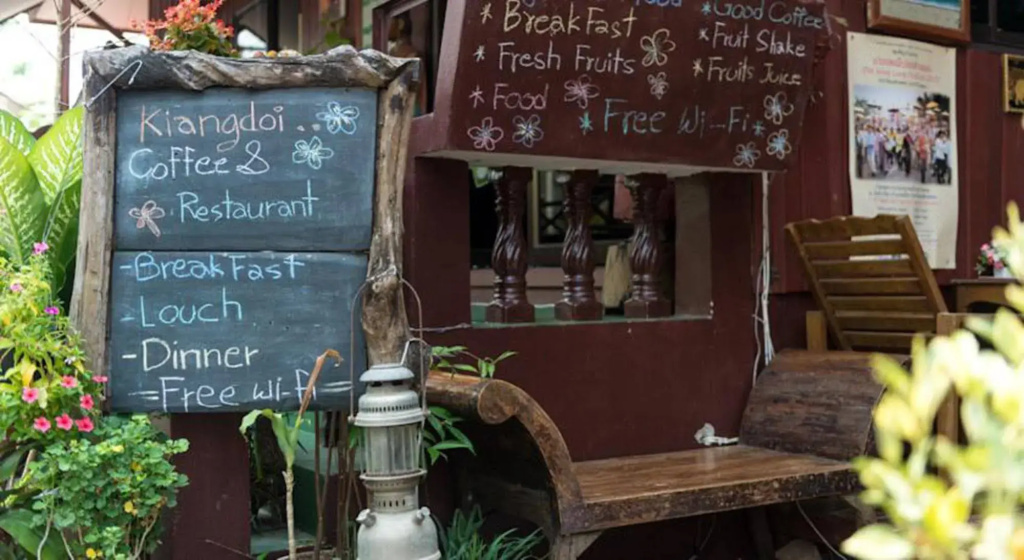 Kiangdoi ..
Coffee &
Restaurant
-BreakFast
-Louch
-Dinner
=Free wi-fi=
* BreakFast
* Fresh Fruits
* Food
*Good Coffee
*Fruit Shake
*Fruits Juice
* Free Wi-Fi *